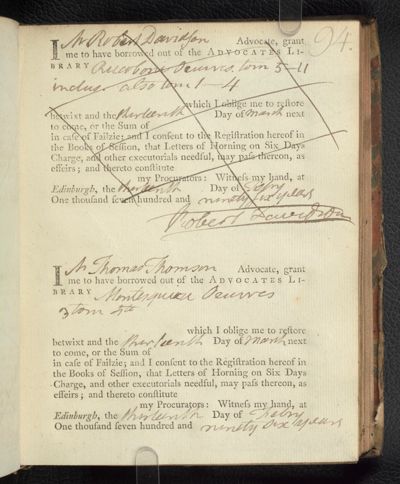 94.
I Mr Robert Davidson Advocate, grant
me to have borrowed out of the ADVOCATES LI-
BRARY Oeuvres tom 5—11
inclus. also tom 1—4
which I oblige me to restore
betwixt and the thirteenth Day of March next
to come, or the Sum of
in case of Failzie; and I consent to the Registration hereof in
the Books of Session, that Letters of Horning on Six Days
Charge, and other executorials needful, may pass thereon, as
effeirs; and thereto constitute
my Procurators: Witness my hand, at
Edinburgh, the thirteenth Day of Febry
One thousand seven hundred and ninety six years
Robert Davidson
I Mr Thomas Thomson Advocate, grant
me to have borrowed out of the ADVOCATES LI-
BRARY Montesquieu Oeuvres
3 tom
which I oblige me to restore
betwixt and the thirteenth Day of March next
to come, or the Sum of
in case of Failzie; and I consent to the Registration hereof in
the Books of Session, that Letters of Horning on Six Days
Charge, and other executorials needful, may pass thereon, as
effeirs; and thereto constitute
my Procurators: Witness my hand, at
Edinburgh, the thirteenth Day of Febry
One thousand seven hundred and ninety six years